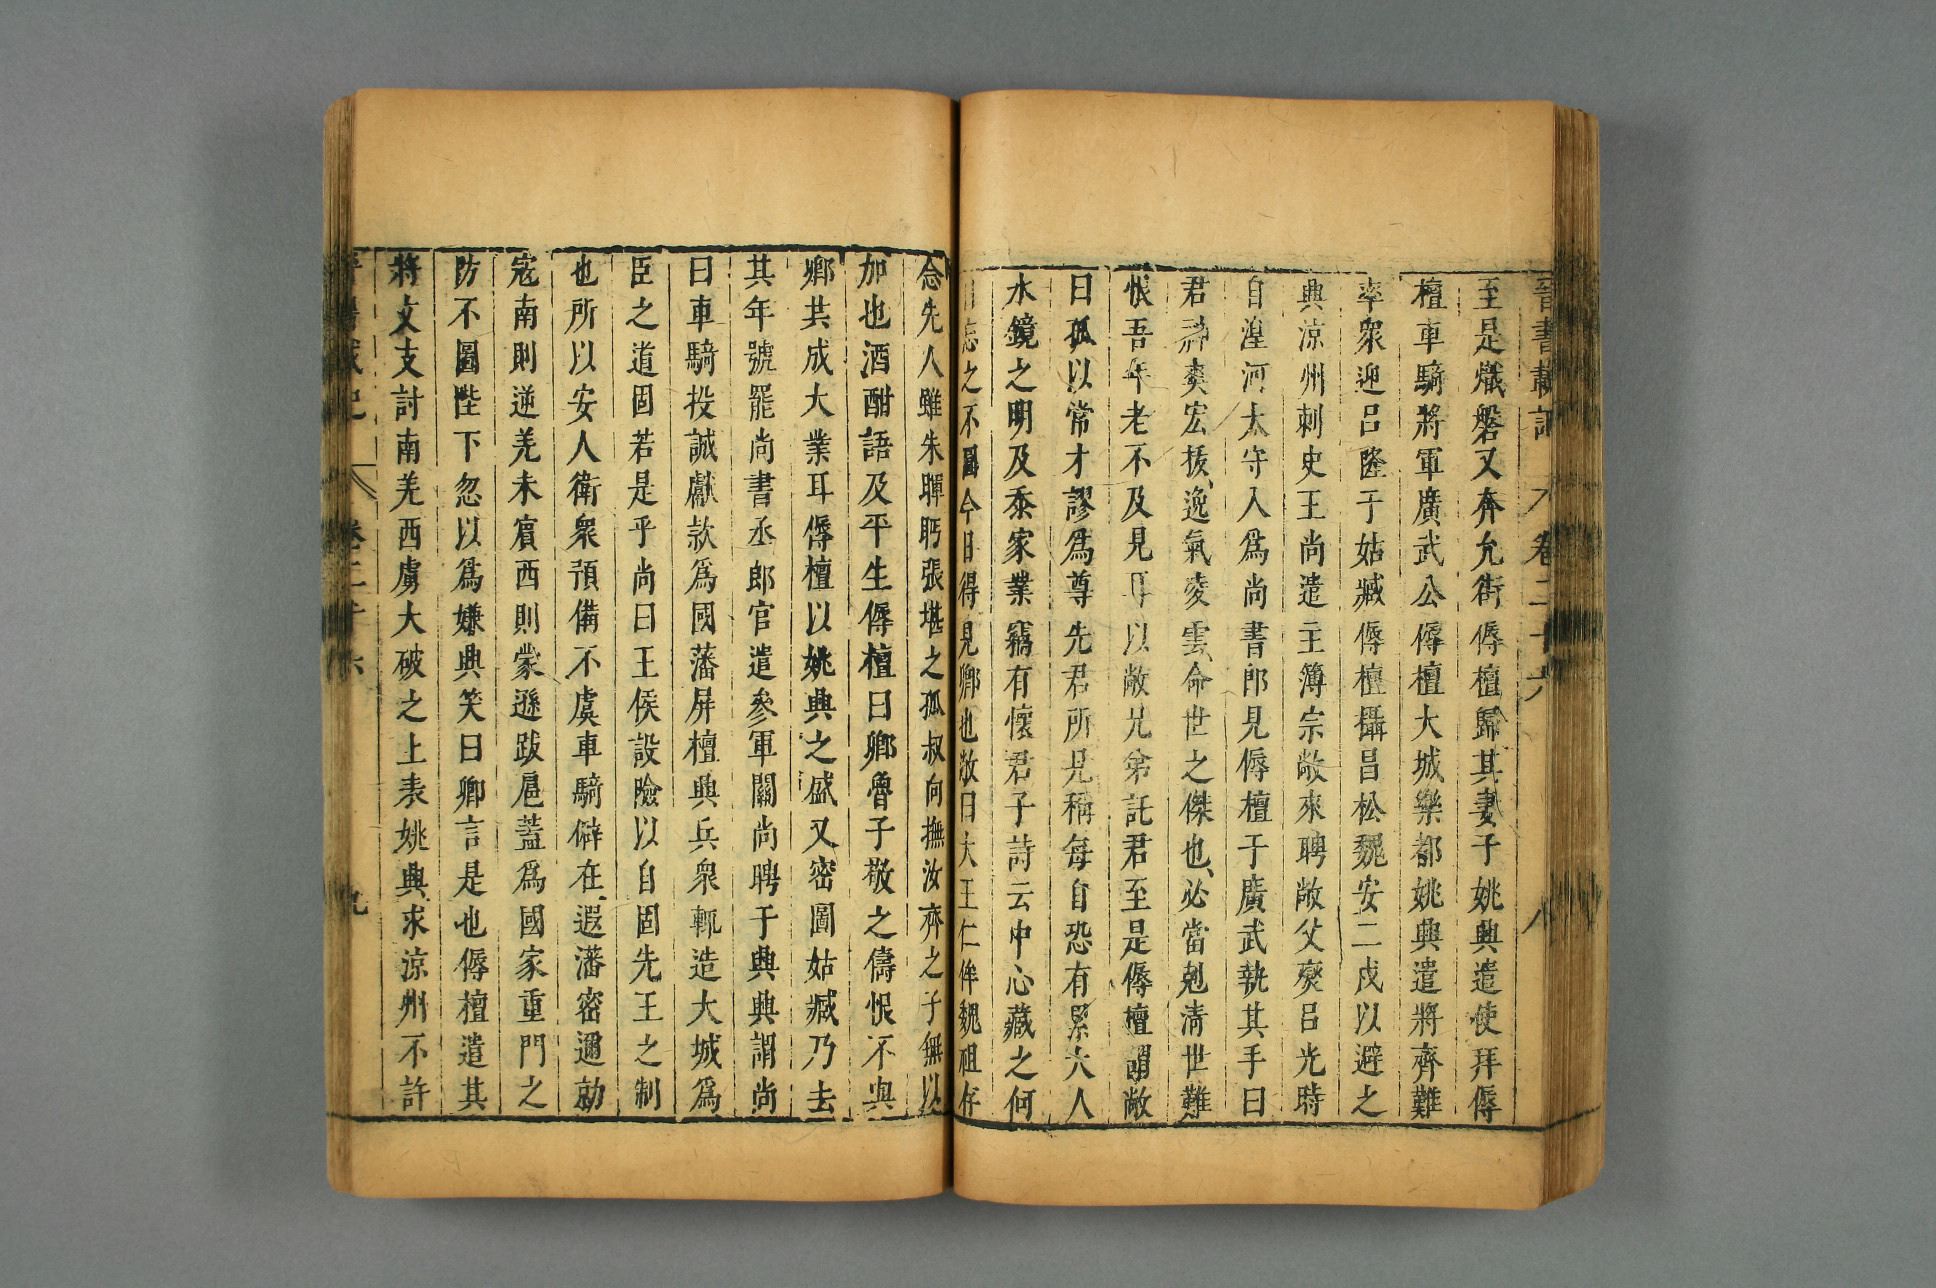 晉書載記 卷二十六 八
至是熾磐又奔允街傉檀歸其妻子姚興遣使拜傉
檀車騎將軍廣武公傉檀大城樂都姚興遣將齊難
率衆迎呂隆于姑臧傉檀攝昌松魏安二戍以避之
興涼州刺史王尚遣主簿宗敞來聘敞父燮呂光時
自湟河太守入爲尚書郎見傉檀于廣武執其手曰
君神爽宏拔逸氣凌雲命世之傑也必當剋清世難
恨吾年老不及見耳以敞兄弟託君至是傉檀謂敞
曰孤以常才謬爲尊先君所見稱每自恐有累大人
水鏡之明及忝家業竊有懷君子詩云中心藏之何
日忘之不圖今日得見卿也敞曰大王仁侔魏祖存
念先人雖朱暉眄張堪之孤叔向撫汝齊之子無以
加也酒酣語及平生傉檀曰卿魯子敬之儔恨不與
卿共成大業耳傉檀以姚興之盛又密圖姑臧乃去
其年號罷尚書丞郎官遣參軍關尚聘于興興謂尚
曰車騎投誠獻款爲國藩屏檀興兵衆輒造大城爲
臣之道固若是乎尚曰王侯設險以自固先王之制
也所以安人衛衆預備不虞車騎僻在遐藩密邇勍
寇南則逆羌未賓西則蒙遜跋扈蓋爲國家重門之
防不圖陛下忽以爲嫌興笑曰卿言是也傉檀遣其
將文支討南羌西虜大破之上表姚興求涼州不許
卷二十六 九